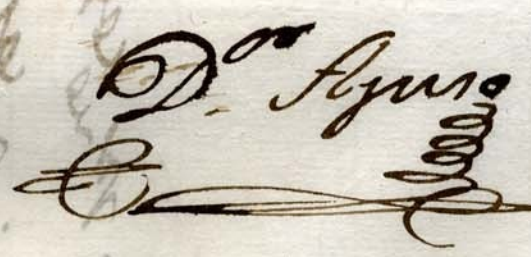 D.or Ayuso